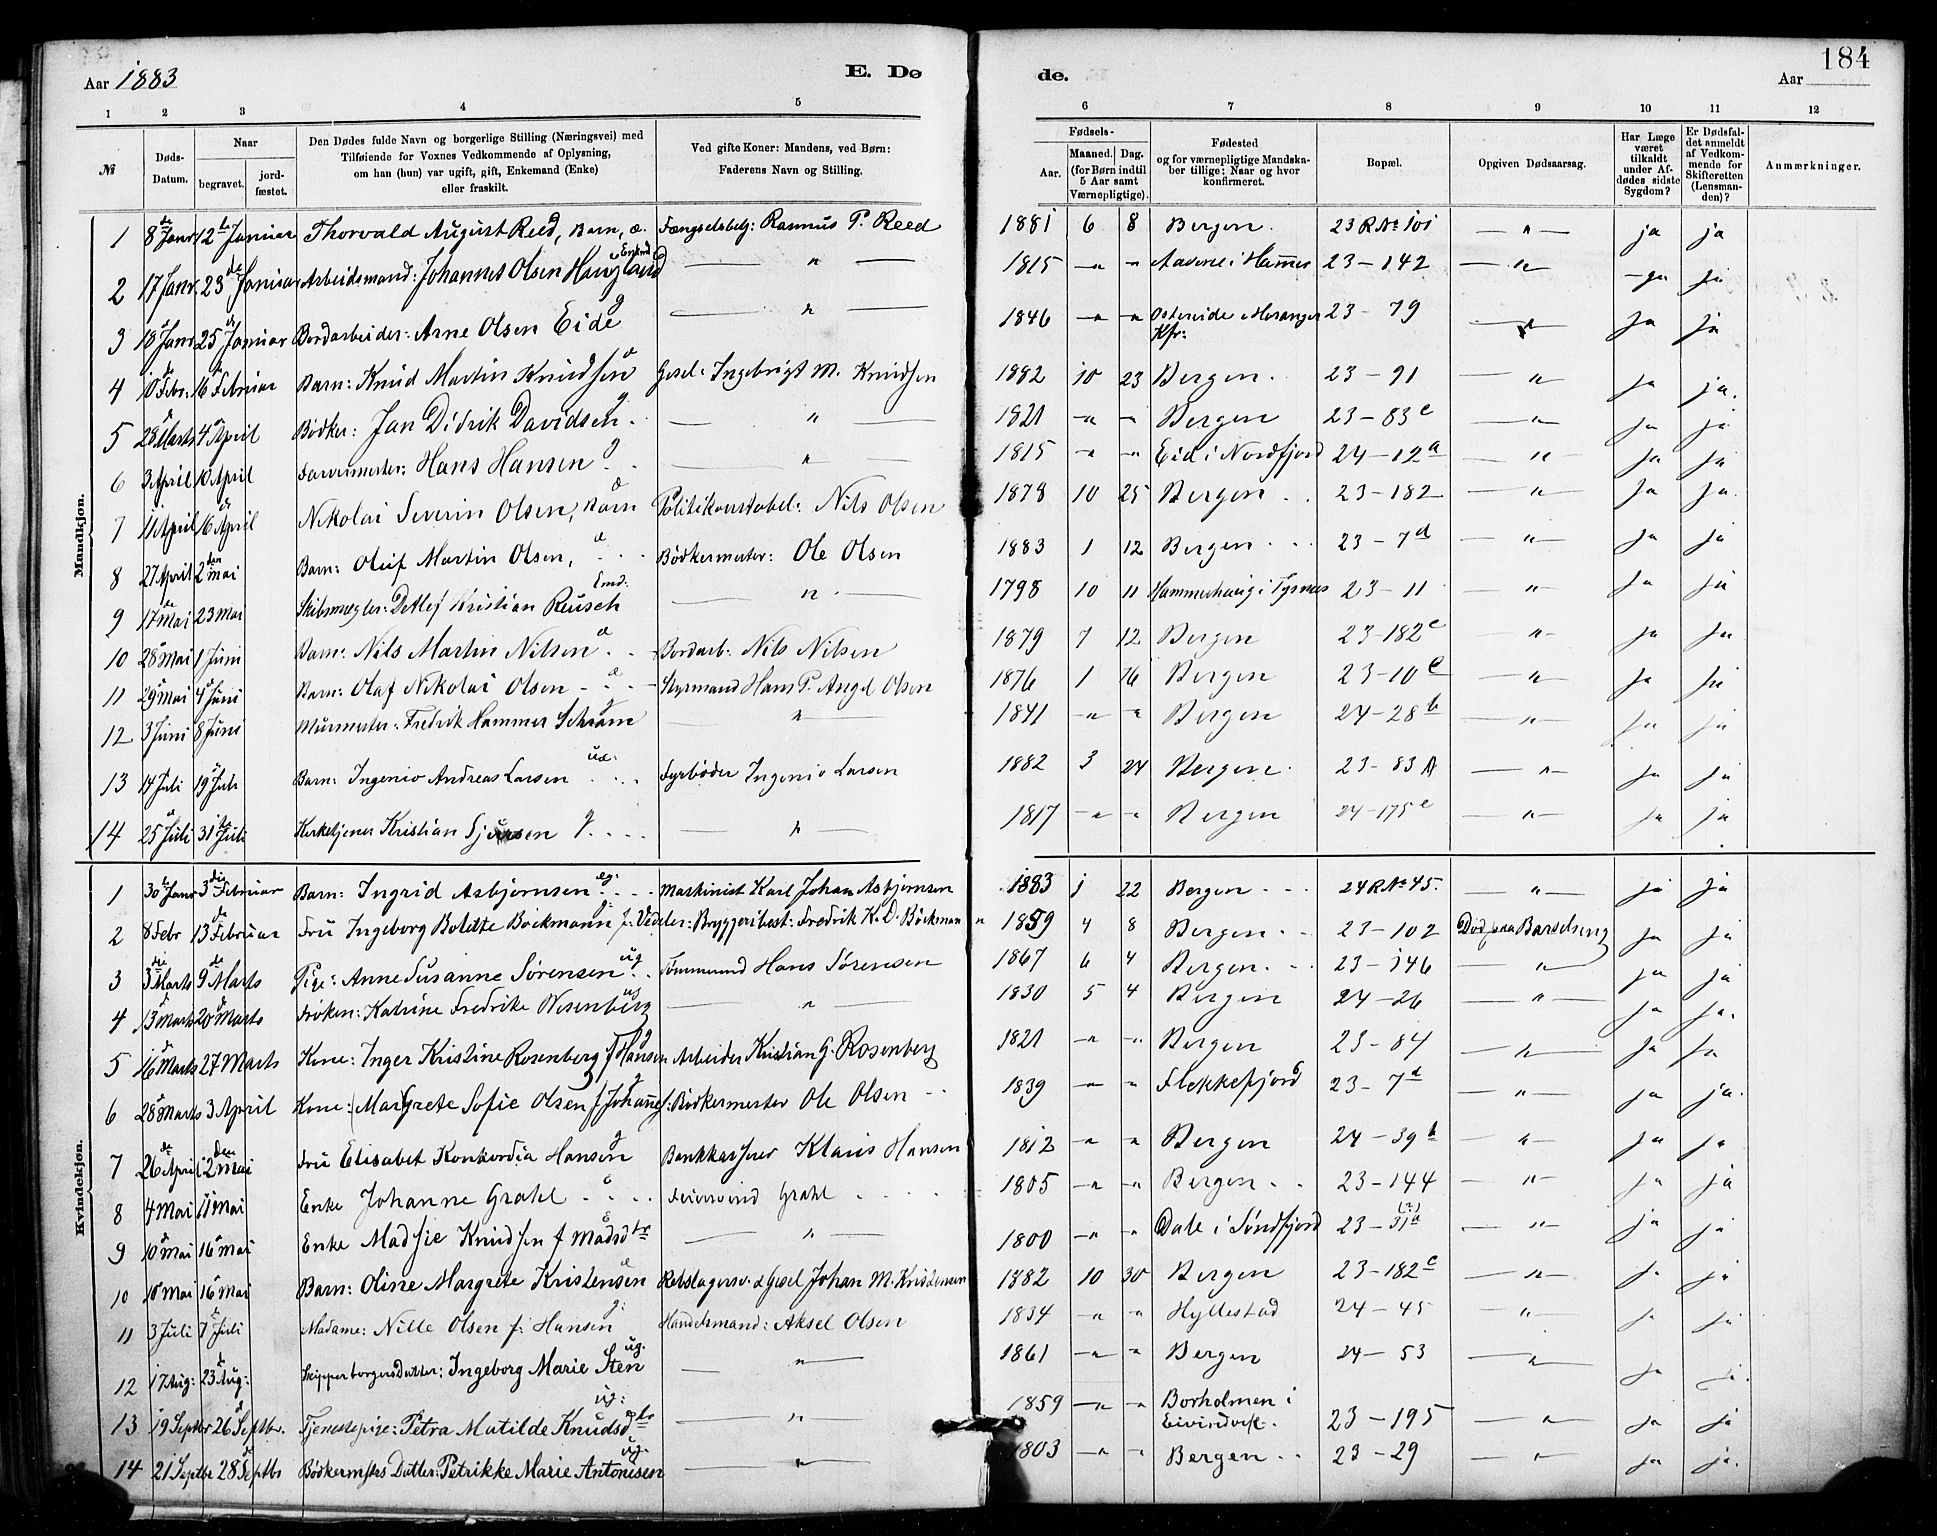 Aar 1883
E. Dø
de.
184
Aar
1 2 3 4 5 6 7 8 9 10 11 12
№
Døds-Datum.
Naar
begravet.
jordfæstet.
Den Dødes fulde Navn og borgerlige Stilling (Næringsvei) med
Tilføiende for Voxnes Vedkommende af Oplysning,
om han (hun) var ugift, gift, Enkemand (Enke)
eller fraskilt.
Ved gifte Koner: Mandens, ved Børn:
Faderens Navn og Stilling.
Fødsels-
Aar.
Maaned. Dag.
(for Børn indtil
5 Aar samt
Værnepligtige).
Fødested
og for værnepligtige Mandska-
ber tillige: Naar og hvor
konfirmeret.
Bopæl.
Opgiven Dødsaarsag.
Har Læge
været
tilkaldt
under Af-
dødes sidste
Sygdom?
Er Dødsfal-
det anmeldt
af Vedkom-
mende for
Skifteretten
(Lensman-
den)?
Anmærkninger.
Mandkjøn.
1 8de Janr 12te Januar Thorvald August Reed, Barn, æ. Fængselsbetj: Rasmus P. Reed 1881 6 8 Bergen. 23 R № 101 — " — ja ja
2 17 Janr. 23de Januar Arbeidsmand: Johannes Olsen Haugland Enkmd — " — 1815 " " i Hammer 23 — 142 — " — ja ja
3 18 Janr 25de Januar Bordarbeider: Arne Olsen Eide g — " — 1846 " " Ostereide i Horanger Kfr: 23 — 79 — " — ja ja
4 10de Febr: 16de Februar Barn: Knud Martin Knudsen æ Gesel: Ingebrigt M. Knudsen 1882 10 23 Bergen. 23 — 91 — " — ja ja.
5 28 Marts 4 April Bødker: Jan Didrik Davidsen g. — " — 1821 " " Bergen 23 — 83c — " — ja ja
6 3 April 10 April Farvermester: Hans Hansen g. — " — 1815 " " Eid i Nordfjord 24 — 12a — " — ja ja
7 11 April 16de April Nikolai Severin Olsen, Barn æ Politikonstabel: Nils Olsen 1878 10 25 Bergen 23 — 182 — " — ja ja.
8 27 April 2den mai Barn: Oluf Martin Olsen, æ Bødkermester: Ole Olsen 1883 1 12 Bergen 23 — 7d — " — ja ja
9 17de Mai 23 Mai Skibsmægler: Detlef Kristian Reusch Emd. — " — 1798 10 11 Hammerhaug i Tysnæs 23 — 11 — " — ja ja
10 28 Mai 1 Juni Barn: Nils Martin Nilsen æ Bordarb: Nils Nilsen 1879 7 12 Bergen 23 — 182c — " — ja ja
11 29 Mai 4 Juni Barn: Olaf Nikolai Olsen æ Styrmand Hans P. Angel Olsen 1876 1 16 Bergen 23 — 10c — " — ja ja
12 3 Juni 8 Juni Murmester: Fredrik Hammer Schram g — " — 1841 " " Bergen 24 — 28b — " — ja ja
13 14 Juli 19 Juli Barn: Ingenio Andreas Larsen uæ: Fyrbøder Ingenio Larsen 1882 3 24 Bergen. 23 — 83 A — " — ja ja
14 25 Juli 31 Juli Kirketjener Kristian g — " — 1817 " " Bergen 24 — 175c — " — ja ja
Kvindekjøn.
1 30 Janr 3die Februar Barn: Ingrid Asbjørnsen eg: Maskinist Karl Johan Asbjørnsen 1883 1 22 Bergen 24 R № 45. — " — ja ja
2 8 Febr 13de Februar Fru Ingeborg Bolette Bøckmann g. f: Vedeler: Bryggeribest: Fredrik K. D. Böckmann 1859 4 8 Bergen 23 — 102 Død paa Barselseng ja ja
3 3die Marts 9de Marts Pige: Anne Susanne Sørensen ug Tømmermd Hans Sørensen 1867 6 4 Bergen. 23 — 146 — " — ja ja
4 13 Marts 20 Marts Frøken: Katrine Fredrike Wesenberg ug — " — 1830 5 4 Bergen 24 — 26 — " — ja ja.
5 16de Marts 27 Marts Kone: Inger Kristine Rosenberg f Hansen g Arbeider Kristian G. Rosenberg 1821 " " Bergen 23 — 84 — " — ja ja
6 28 Marts 3 April Kone: Margrete Sofie Olsen f Johannes: g Bødkermester Ole Olsen 1839 " " Flekkefjord 23 — 7d — " — ja ja.
7 26de April 2den Mai Fru Elisabet Konkordia Hansen g Bankkasserer Klaus Hansen 1812 " " Bergen 24 — 39b — " — ja ja
8 4 Mai 11 Mai Enke Johanne Grahl e Feiersvend Grahl 1805 " " Bergen 23 — 144 — " — ja ja
9 10de Mai 16 Mai Enke Madsie Knudsen f Madsdtr e — " — 1800 " " Dale i Søndfjord 23 — 31a (?) — " — ja ja
10 10 Mai 16 Mai Barn: Oline Margrete Kristensen æ Rebslagersv. & Gesel Johan M. Kristensen 1882 10 30 Bergen 23 — 182c — " — ja ja
11 3 Juli 7 Juli Madame: Nille Olsen f: Hansen g: Handelsmand: Aksel Olsen 1834 " " Hyllestad 24 — 45 — " — ja ja
12 17 Aug: 23 Aug: Skipperborgers Datter: Ingeborg Marie Sten ug. — " — 1861 " " Bergen 24 — 53 — " — ja ja.
13 19 Septbr 26 Septbr. Tjenestepige: Petra Matilde Knudsdtr ug: — " — 1859 " " Borholmen i Eivindvik. 23 — 195 — " — ja ja
14 21 Septbr 28de Septbr Bødkermstrs Datter: Petrikke Marie Antonisen ug. — " — 1803 " " Bergen 23 — 29 — " — ja ja.